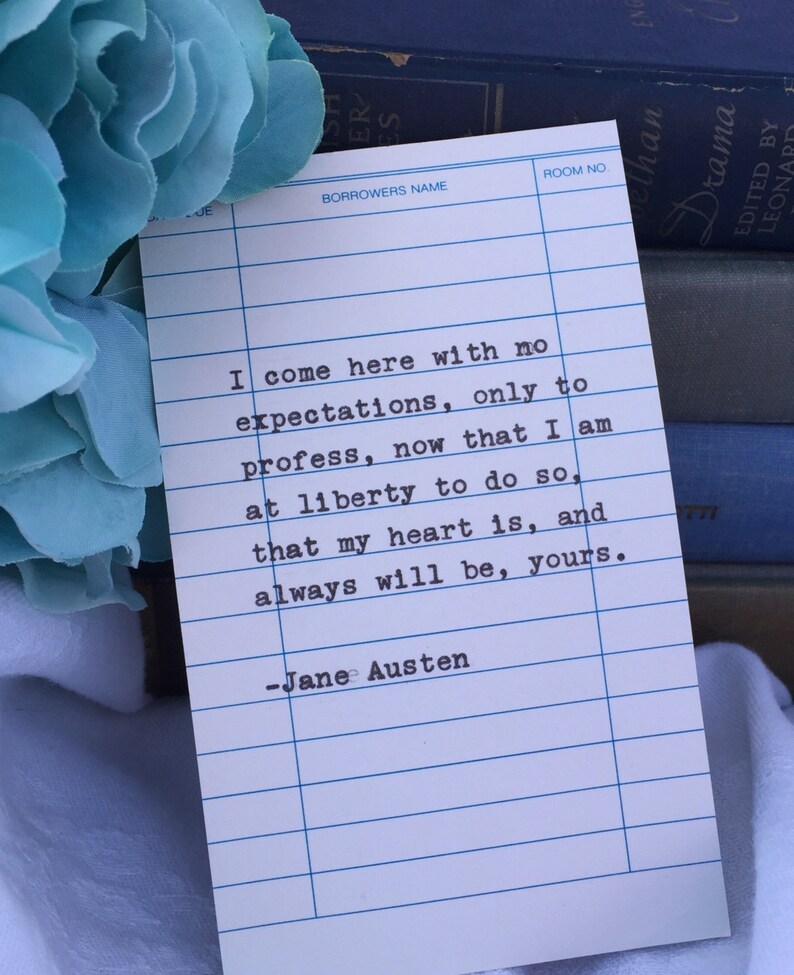 BORROWERS NAME
ROOM NO.
I come here with no
expectations, only to
profess, now that I am
at liberty to do so,
that my heart is, and
always will be, yours.
-Jane Austen
Drama
EDITED BY
LEONARD